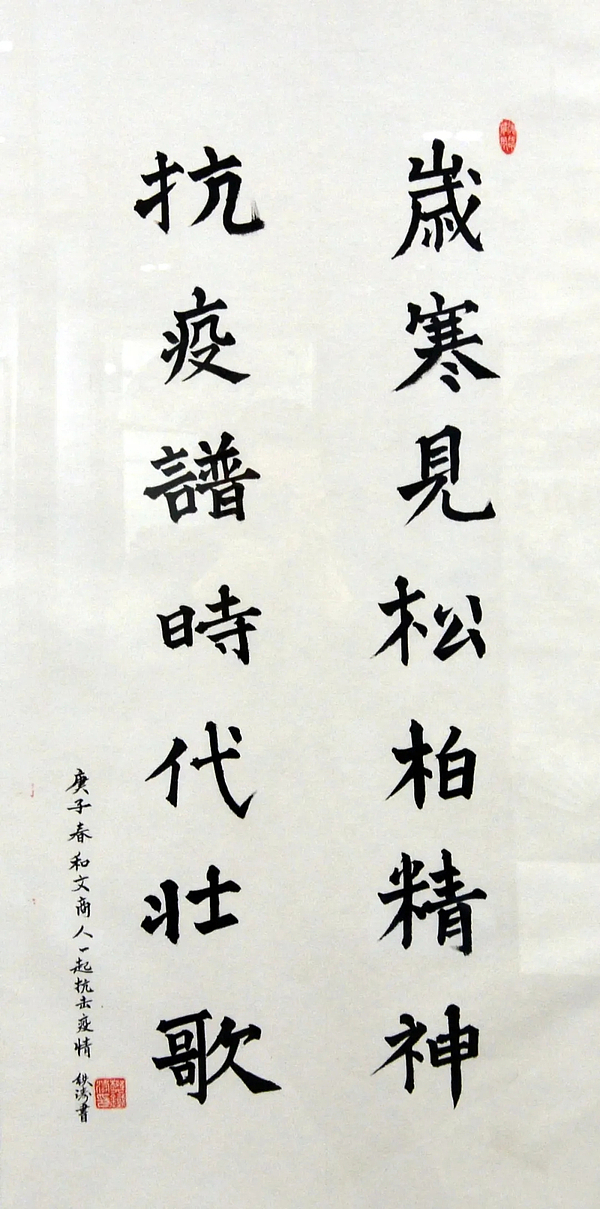 歲寒見松柏精神
抗疫譜時代壯歌
庚子春和文商人一起抗击疫情
铁涛書